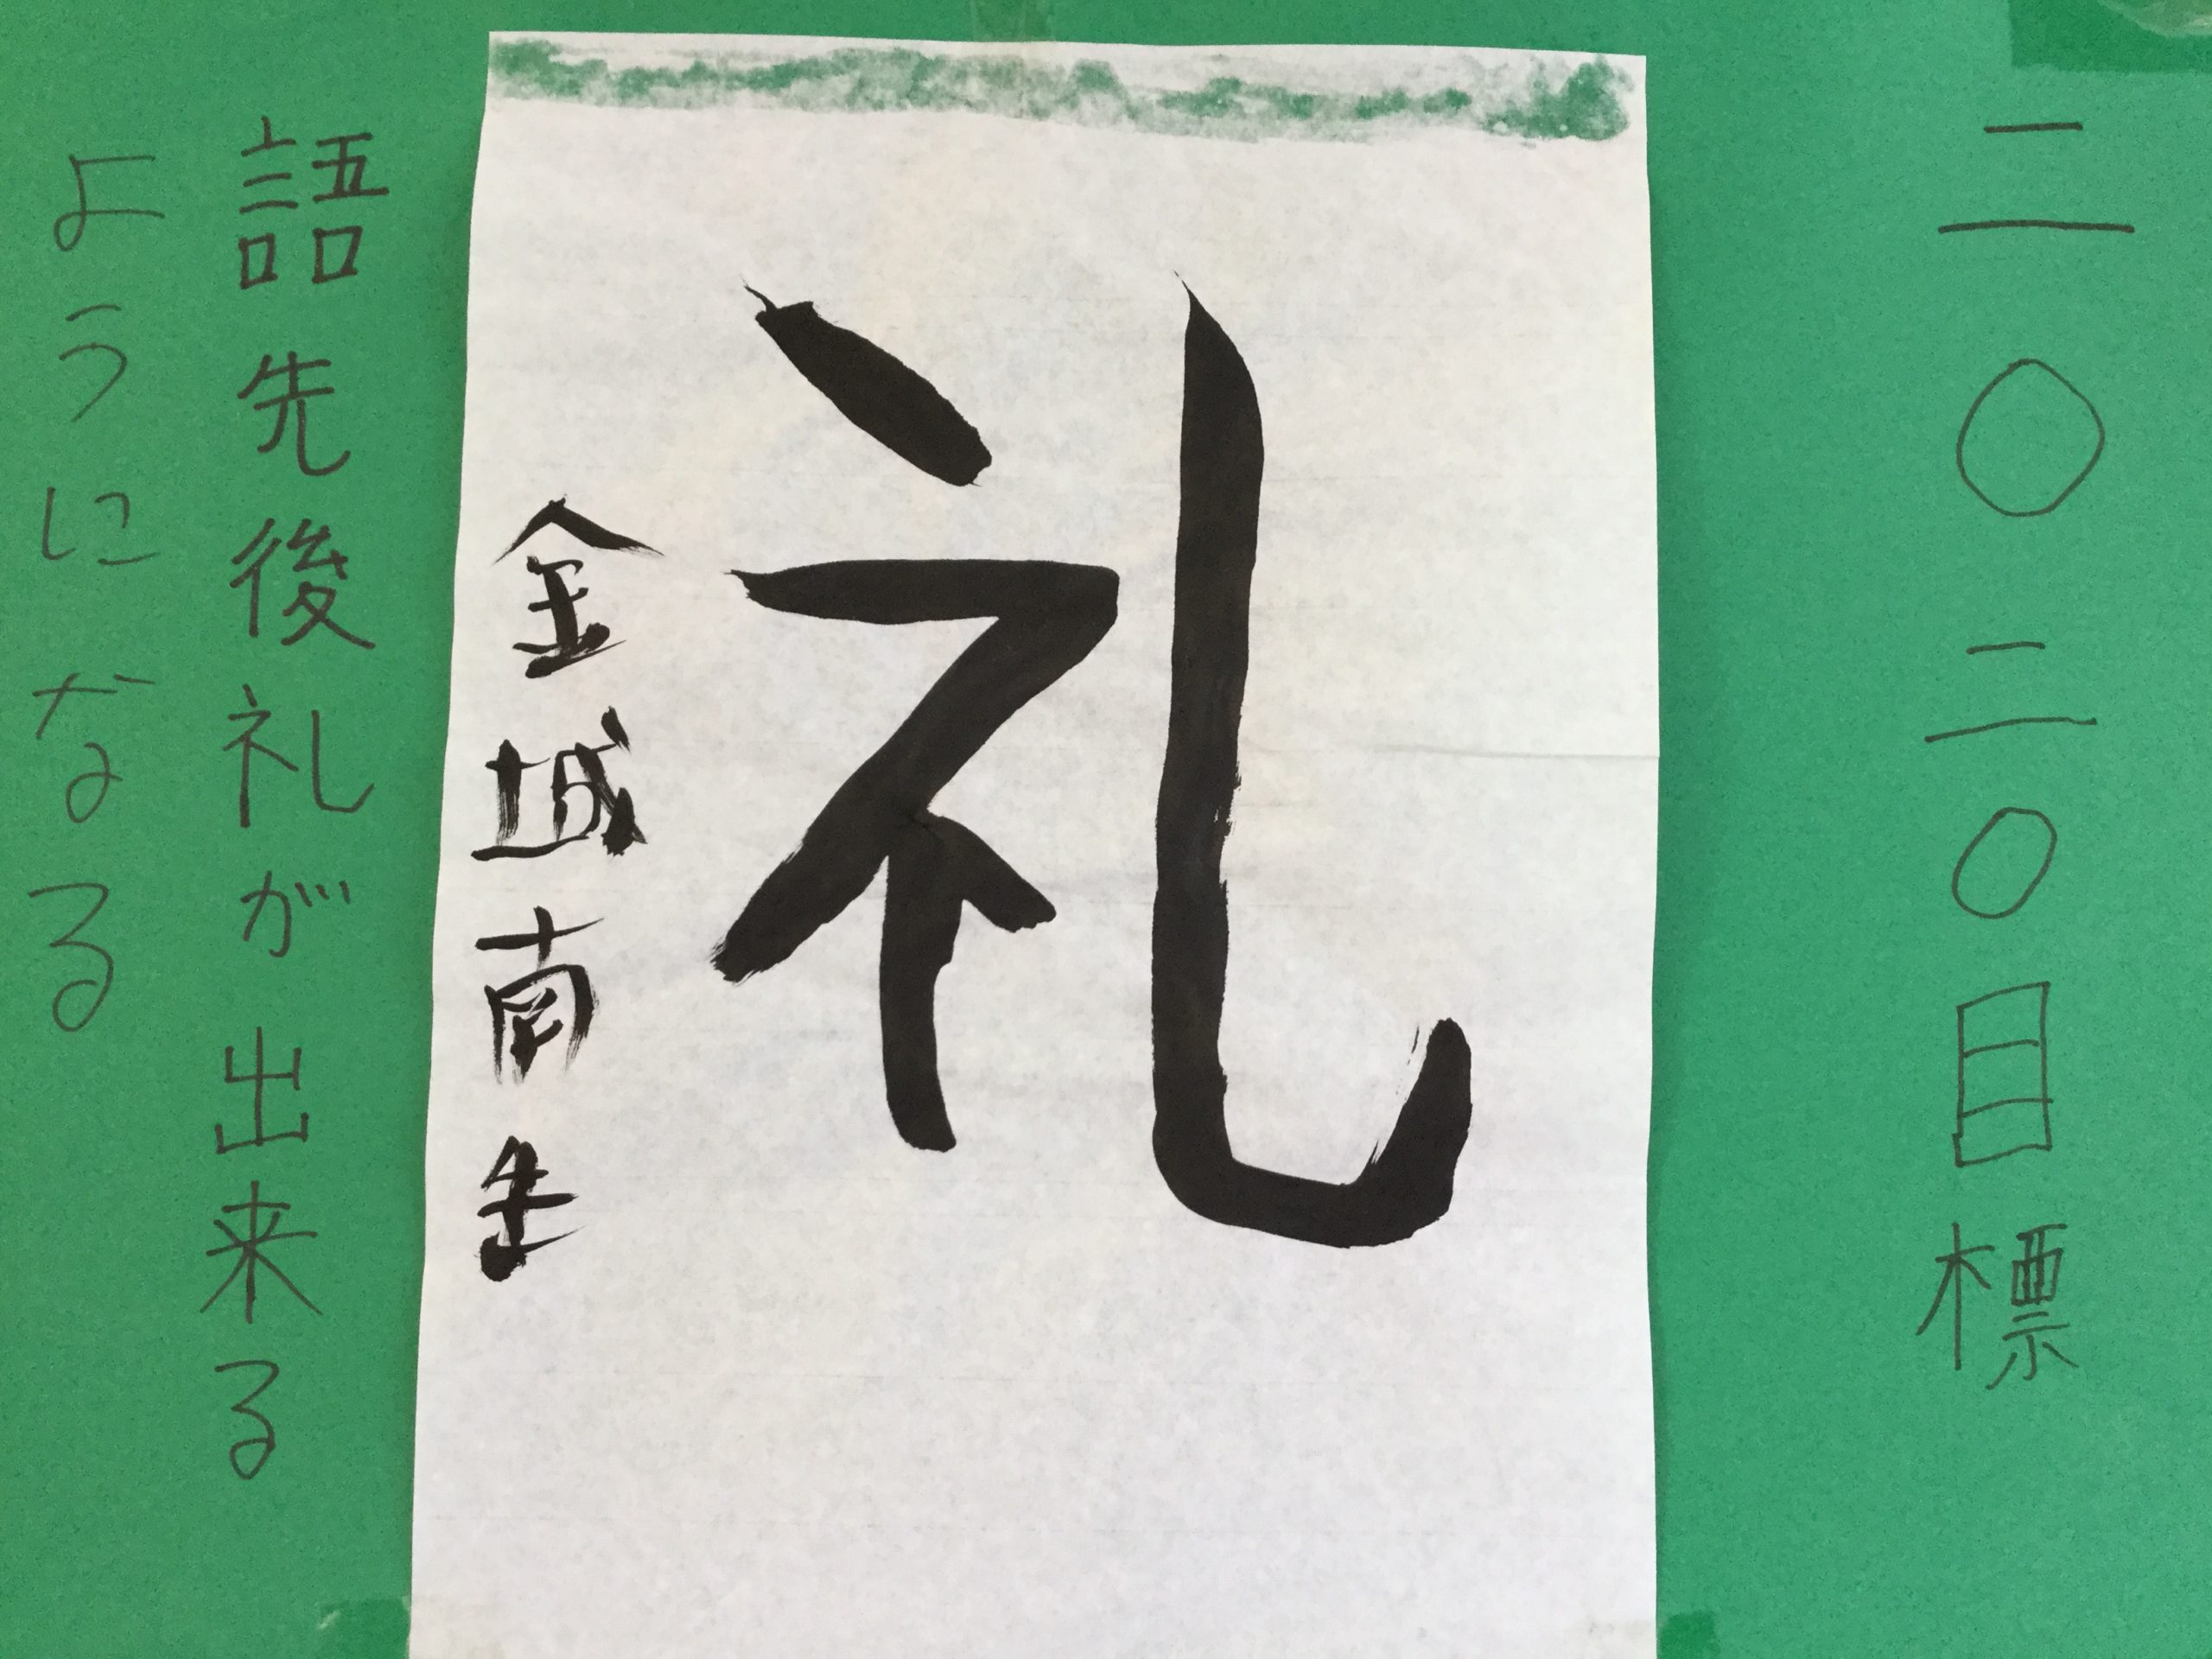 二〇二〇目標
礼
金城南生
語先後礼が出来る
ようになる